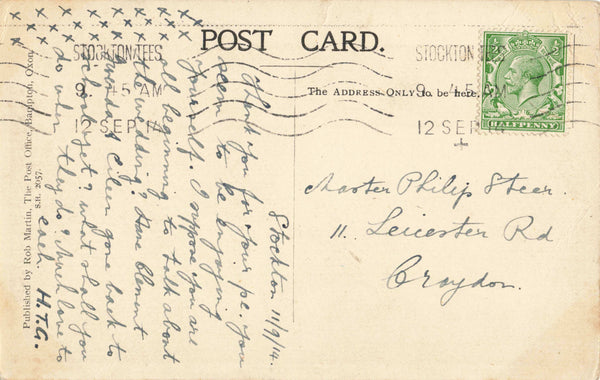 POST CARD.
The Address Only to be here.
STOCKTON TEES
9 45 AM
12 SEP 14
STOCKTON TEES
9 45 AM
12 SEP 14
HALFPENNY
Master Philip Steer
11. Leicester Rd
Croydon
Stockton 11/9/14.
Thank you for your p.c. you
seem to be enjoying
yourself. I suppose you are
all beginning to talk about
the wedding? Have Clement
and Eileen gone back to
school yet? what shall you
do when they do? Much love to
each H.T.G.
x x x x x x x x x
x x x x x x x x x
Published by Rob Martin, The Post Office, Bampton, Oxon.
S.H. 2057.